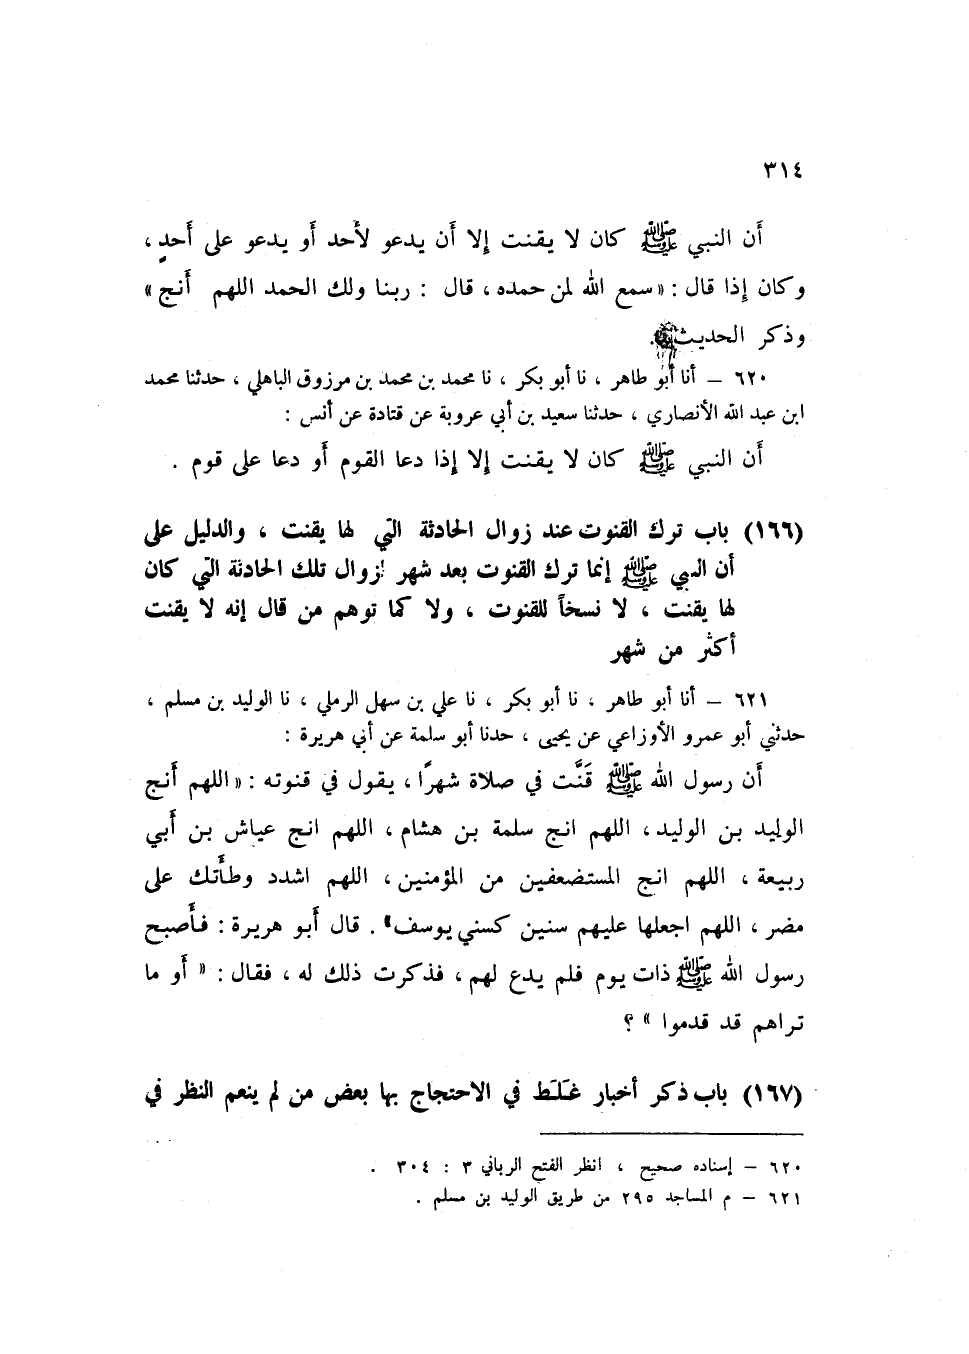 ٣١٤
أَن النبي ﷺ كان لا يقنت إلا أَن يدعو لأَحد أَو يدعو على أَحدٍ ،
وكان إِذا قال : «سمع الله لمن حمده ، قال : ربنا ولك الحمد اللهم أَنج»
وذكر الحديث .
٦٢٠ – أنا أبو طاهر ، نا أبو بكر ، نا محمد بن محمد بن مرزوق الباهلي ، حدثنا محمد
ابن عبد الله الأنصاري ، حدثنا سعيد بن أبي عروبة عن قتادة عن أنس :
أَن النبي ﷺ كان لا يقنت إلا إِذا دعا القوم أَو دعا على قوم .
(١٦٦) باب ترك القنوت عند زوال الحادثة التي لها يقنت ، والدليل على
أن النبي ﷺ إنما ترك القنوت بعد شهر لزوال تلك الحادثة التي كان
لها يقنت ، لا نسخاً للقنوت ، ولا كما توهم من قال إنه لا يقنت
أكثر من شهر
٦٢١ – أنا أبو طاهر ، نا أبو بكر ، نا علي بن سهل الرملي ، نا الوليد بن مسلم ،
حدثني أبو عمرو الأوزاعي عن يحيى ، حدنا أبو سلمة عن أبي هريرة :
أَن رسول الله ﷺ قَنَّت في صلاة شهرًا ، يقول في قنوته : «اللهم أَنج
الوليد بن الوليد ، اللهم انج سلمة بن هشام ، اللهم انج عياش بن أَبي
ربيعة ، اللهم انج المستضعفين من المؤمنين ، اللهم اشدد وطأَتك على
مضر ، اللهم اجعلها عليهم سنين كسني يوسف» . قال أَبو هريرة : فأَصبح
رسول الله ﷺ ذات يوم فلم يدع لهم ، فذكرت ذلك له ، فقال : « أَو ما
تراهم قد قدموا » ؟
(١٦٧) باب ذكر أخبار غَلَطَ في الاحتجاج بها بعض من لم ينعم النظر في
٦٢٠ – إسناده صحيح ، انظر الفتح الرباني ٣ : ٣٠٤ .
٦٢١ – م المساجد ٢٩٥ من طريق الوليد بن مسلم .